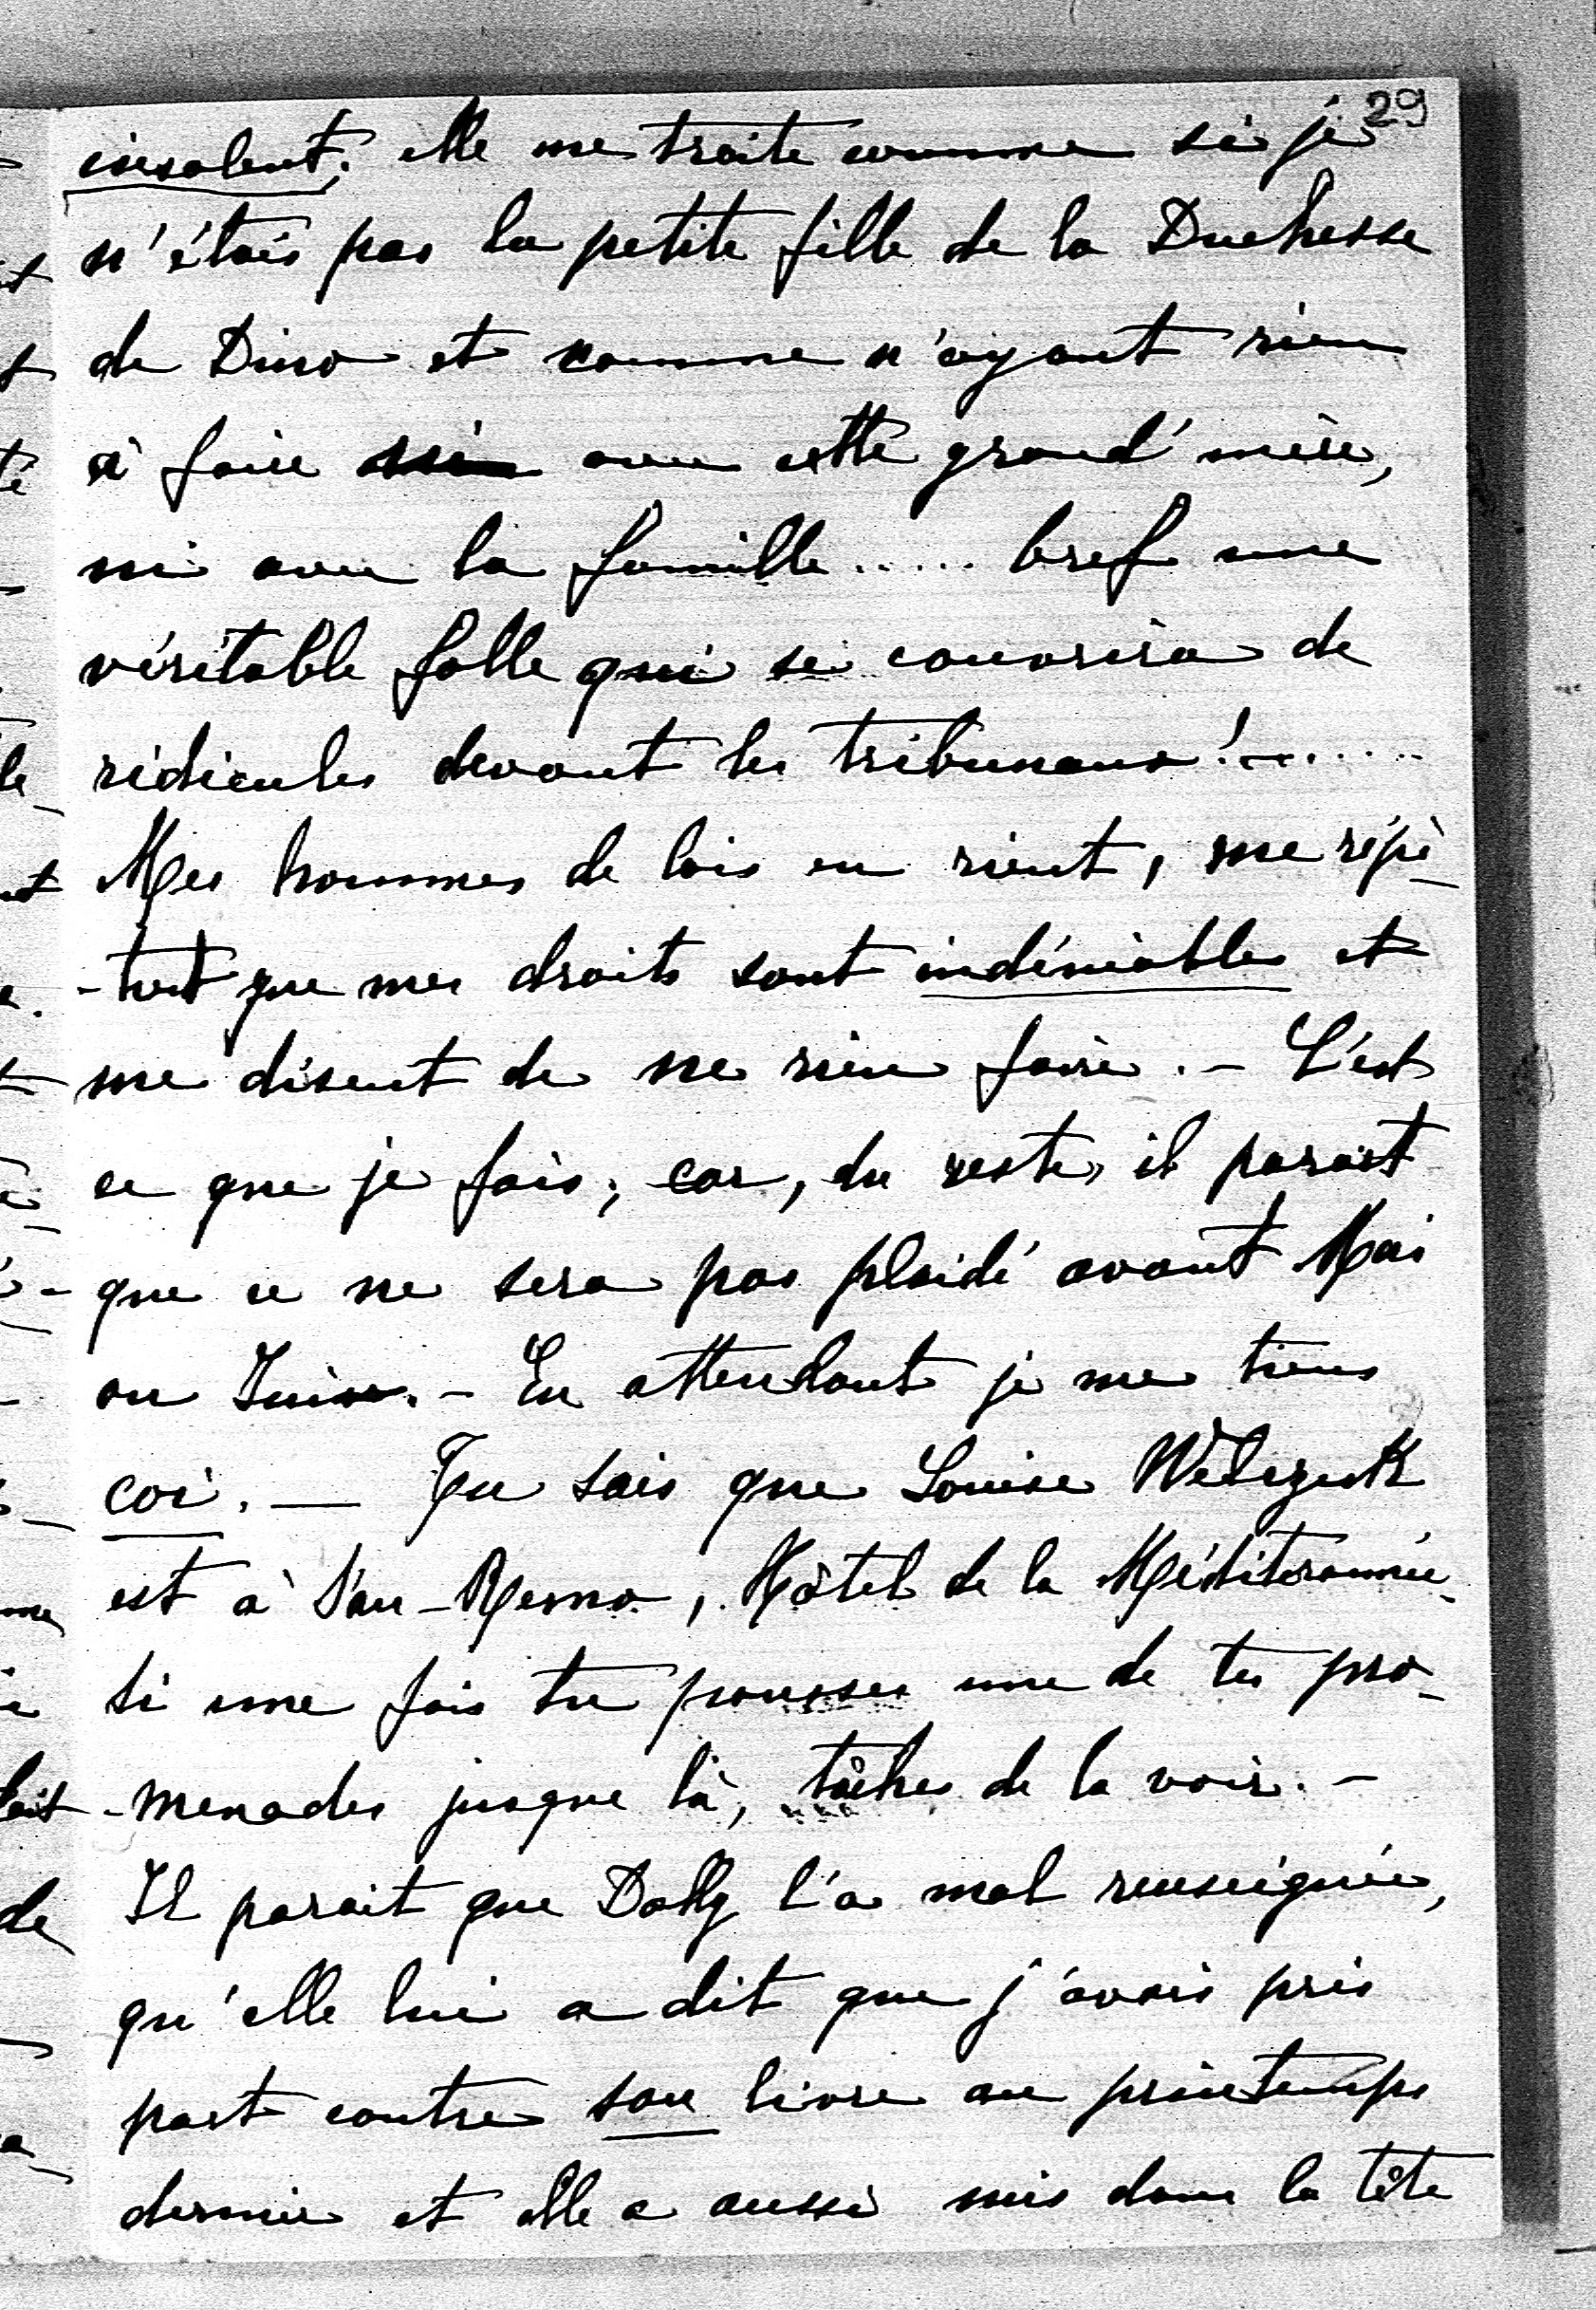 29
insolent; elle me traite comme si je
n'étais pas la petite fille de la Duchesse
de Dino et comme n'ayant rien
à faire avec cette grand'mère,
ni avec la famille ..... bref une
véritable folle qui se couvrira de
ridicules devant les tribunaux! ......
Mes hommes de lois en rient, me répè-
-tent que mes droits sont indéniables et
me disent de ne rien faire. - C'est
ce que je fais; car, du reste, il parait
que ce ne sera pas plaidé avant Mai
ou Juin. - En attendant je me tiens
coi. — Tu sais que Louise
est à San-Remo, Hôtel de la Méditerannée.
si une fois tu pousses une de tes pro-
-menades jusque là, tâches de la voir. -
Il parait que Dolly l'a mal renseignée,
qu'elle lui a dit que j'avais pris
part contre son livre au printemps
dernier et elle a aussi mis dans la tête